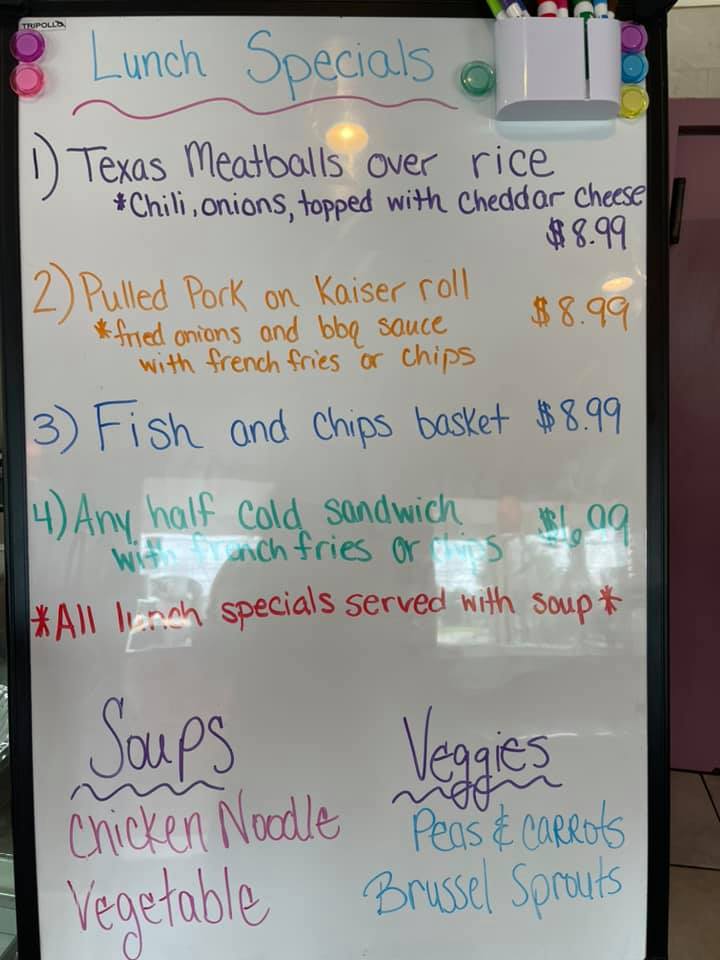 TRIPOLLO
Lunch Specials
1) Texas Meatballs over rice
*Chili, onions, topped with Cheddar Cheese
$8.99
2) Pulled Pork on Kaiser roll $8.99
*fried onions and bbq sauce
with french fries or chips
3) Fish and Chips basket $8.99
4) Any half cold sandwich $6.99
with french fries or chips
*All lunch specials served with soup*
Soups Veggies
Chicken Noodle Peas & CARROts
Vegetable Brussel Sprouts